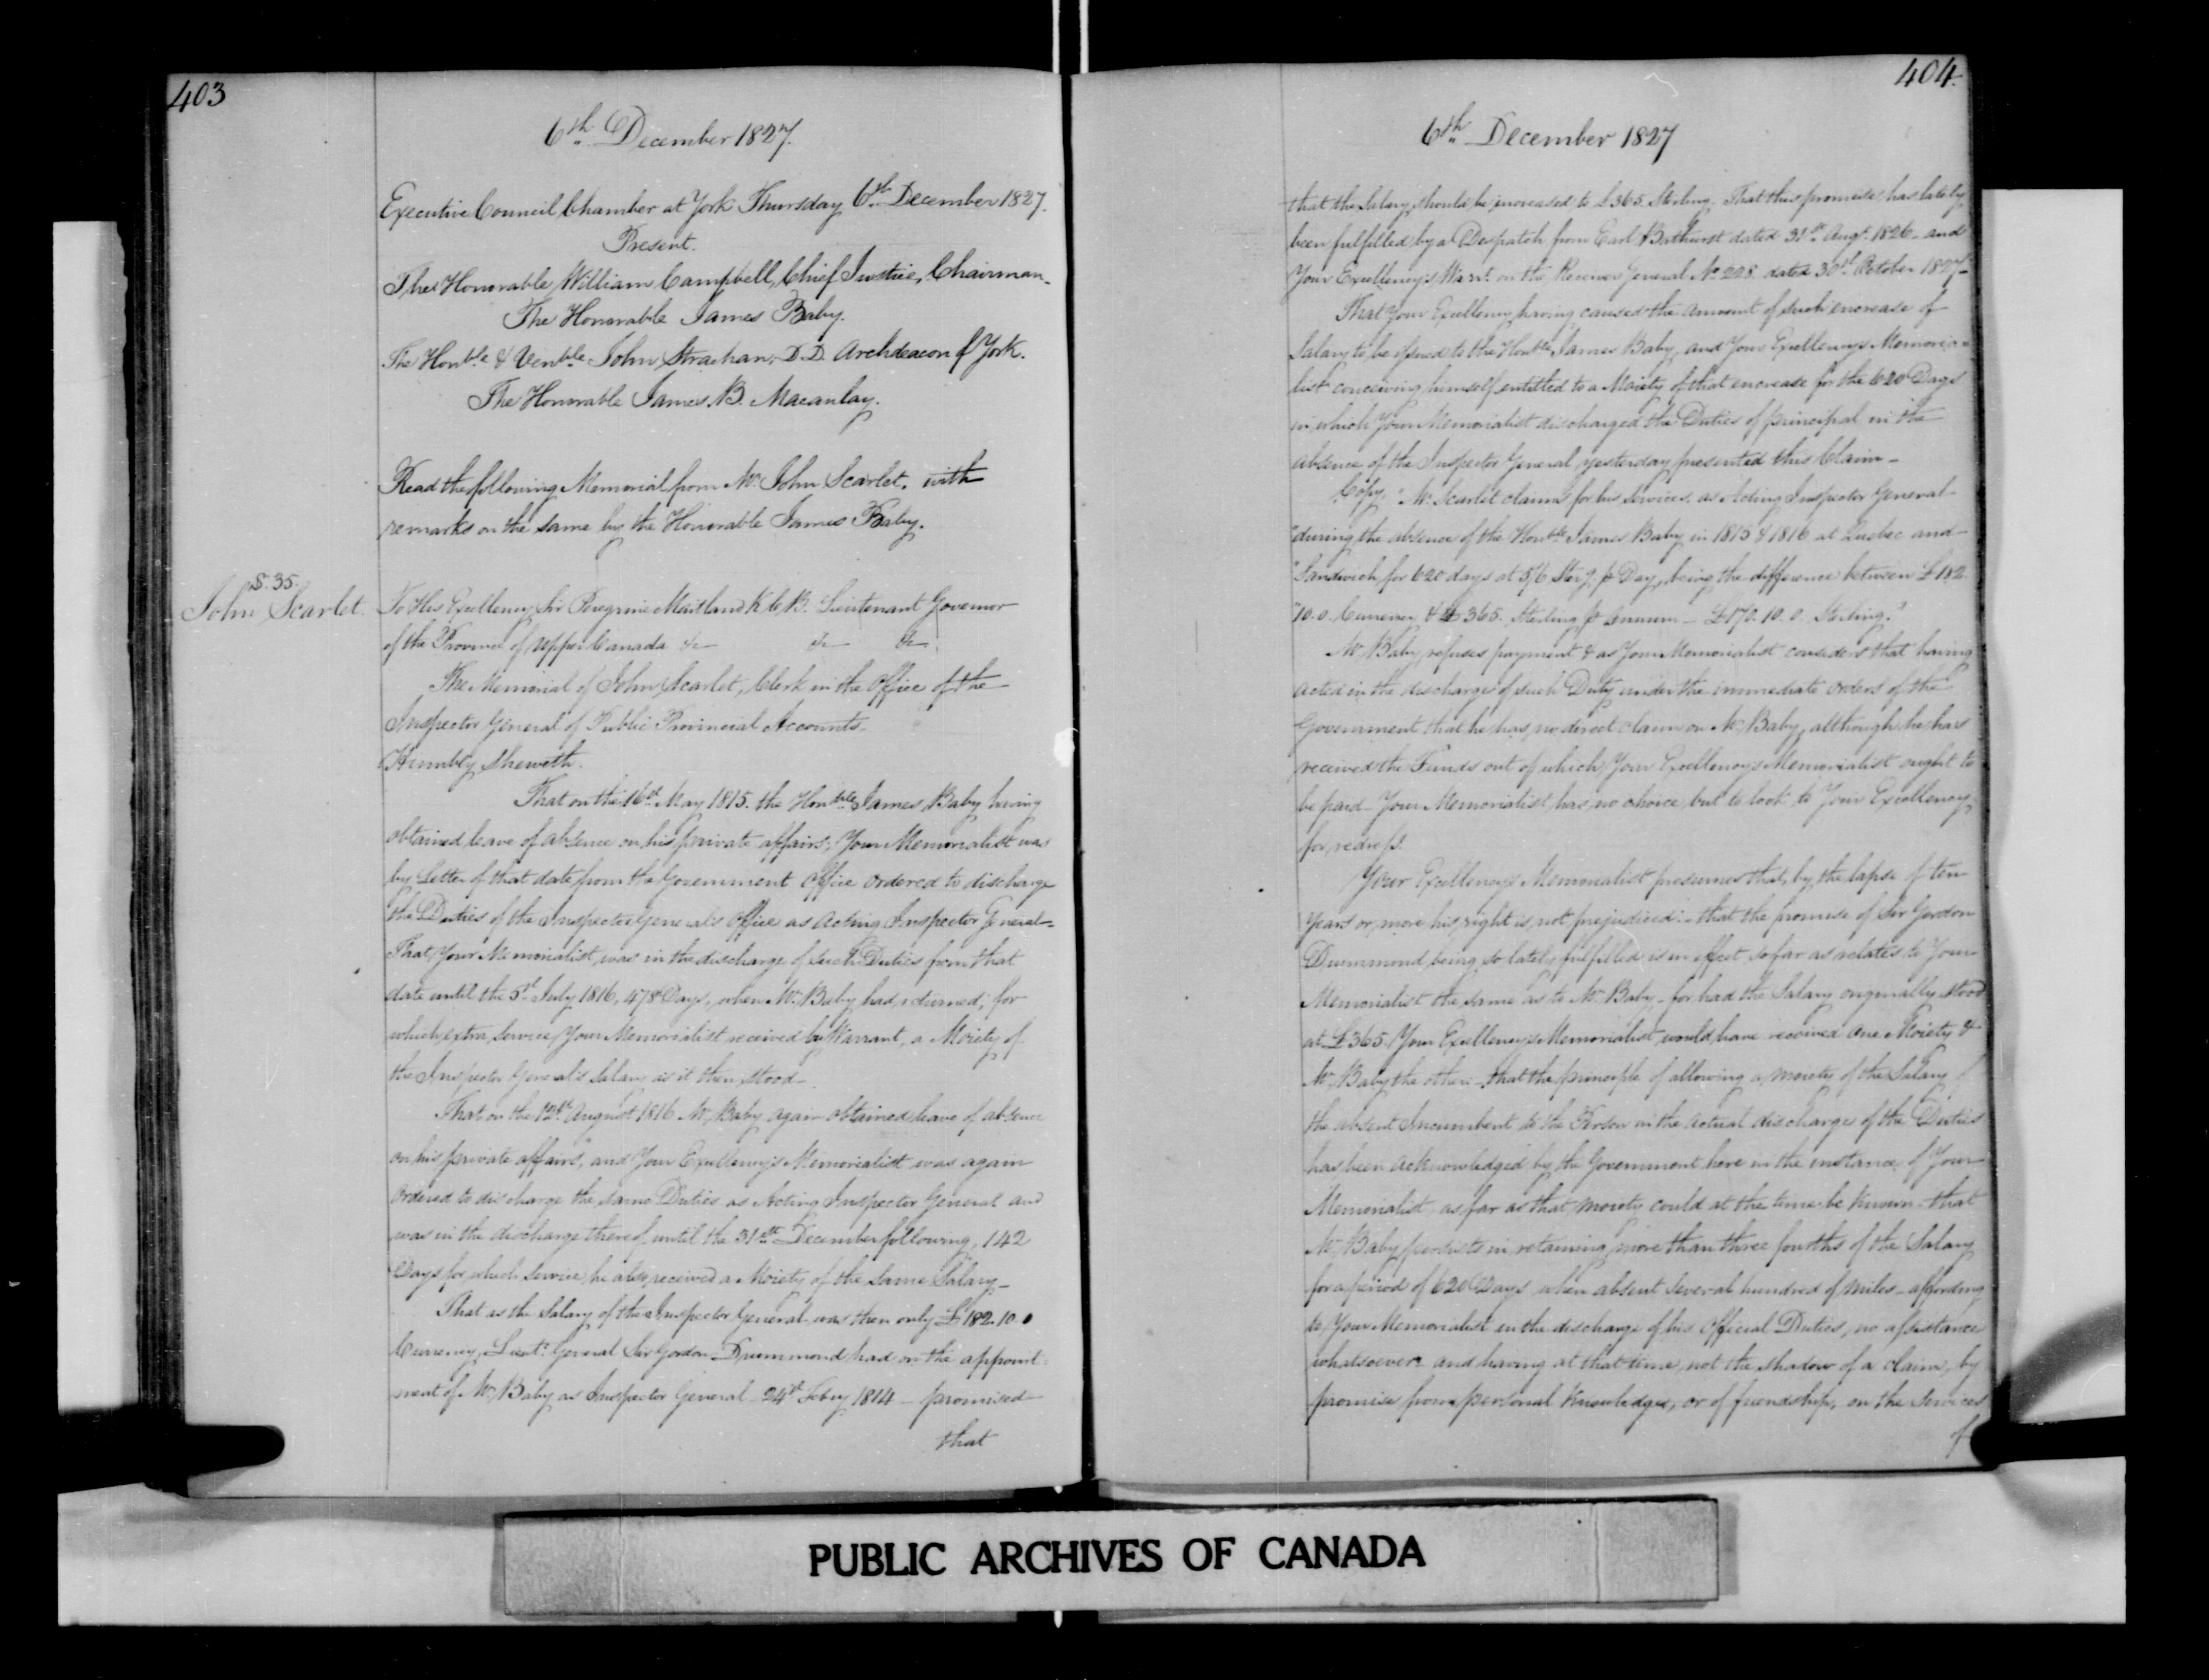 403
6th December 1827.
Executive Council Chamber at York Thursday 6th December 1827.
Present.
The Honorable William Campbell, Chief Justice, Chairman.
The Honorable James Baby.
The Honble & Venble John Strachan, D.D. Archdeacon of York.
The Honorable James B. Macaulay.
Read the following Memorial from Mr John Scarlet, with
remarks on the same by the Honorable James Baby.
S. 35.
John Scarlet.
To His Excellency Sir Peregrine Maitland K.C.B. Lieutenant Governor
of the Province of Upper Canada &c &c &c
The Memorial of John Scarlet, Clerk in the Office of the
Inspector General of Public Provincial Accounts.
Humbly Sheweth.
That on the 16th May 1815. the Honble James Baby having
obtained leave of absence on his private affairs, Your Memorialist was
by Letter of that date from the Government Office ordered to discharge
the Duties of the Inspector General's Office as Acting Inspector General-
That Your Memorialist was in the discharge of such Duties from that
date until the 5th July 1816, 478 Days, when Mr Baby had returned; for
which extra service Your Memorialist received by Warrant, a Moiety of
the Inspector General's Salary as it then stood-
That on the 12th August 1816 Mr Baby again obtained leave of absence
on his private affairs, and Your Excellency's Memorialist was again
ordered to discharge the same Duties as Acting Inspector General and
was in the discharge thereof until the 31st December following, 142
Days for which Service he also received a Moiety of the same Salary-
That as the Salary of the Inspector General was then only £182.10.0
Currency, Lieut. General Sir Gordon Drummond had on the appoint
ment of Mr Baby as Inspector General 24th Feby 1814 - promised
that
404.
6th December 1827
that the Salary should be increased to £365 Sterling. That this promise has lately
been fulfilled by a Despatch from Earl Bathurst dated 31st Augt 1826 - and
Your Excellency's Warrt on the Receiver General No 228 dated 30th October 1827-
That Your Excellency having caused the Amount of such encrease of
Salary to be issued to the Honble James Baby, and Your Excellencys Memoria-
list conceiving himself entitled to a Moiety of that encrease for the 620 Days
in which Your Memorialist discharged the Duties of principal in the
absence of the Inspector General yesterday presented this Claim-
Copy. "Mr Scarlet claims for his services as Acting Inspector General
"during the absence of the Honble James Baby in 1815 & 1816 at Quebec and
"Sandwich for 620 days at 5/6 Sterg p Day, being the difference between £182
"10.0. Currency & £365. Sterling p Annum - £170.10.0. Sterling."
Mr Baby refuses payment & as Your Memorialist considers that having
acted in the discharge of such Duty under the immediate orders of the
Government that he has no direct claim on Mr Baby, although he has
received the Funds out of which Your Excellency's Memorialist ought to
be paid - Your Memorialist has no choice but to look to Your Excellency
for redress.
Your Excellencys Memorialist presumes that, by the lapse of ten
Years or more his right is not prejudiced:- that the promise of Sir Gordon
Drummond being so lately fulfilled is in effect so far as relates to Your
Memorialist the same as to Mr Baby - for had the Salary originally stood
at £365. Your Excellencys Memorialist would have received one Moiety &
Mr Baby the other - that the principle of allowing a moiety of the Salary of
the absent Incumbent to the Person in the actual discharge of the Duties
has been acknowledged by the Government here in the instance of Your
Memorialist, as far as that moiety could at the time be known - that
Mr Baby persists in retaining more than three fourths of the Salary
for a period of 620 Days when absent several hundred of miles - affording
to Your Memorialist in the discharge of his official Duties, no assistance
whatsoever and having at that time, not the shadow of a claim, by
promise from personal knowledge, or of friendship, on the services
of
PUBLIC ARCHIVES OF CANADA